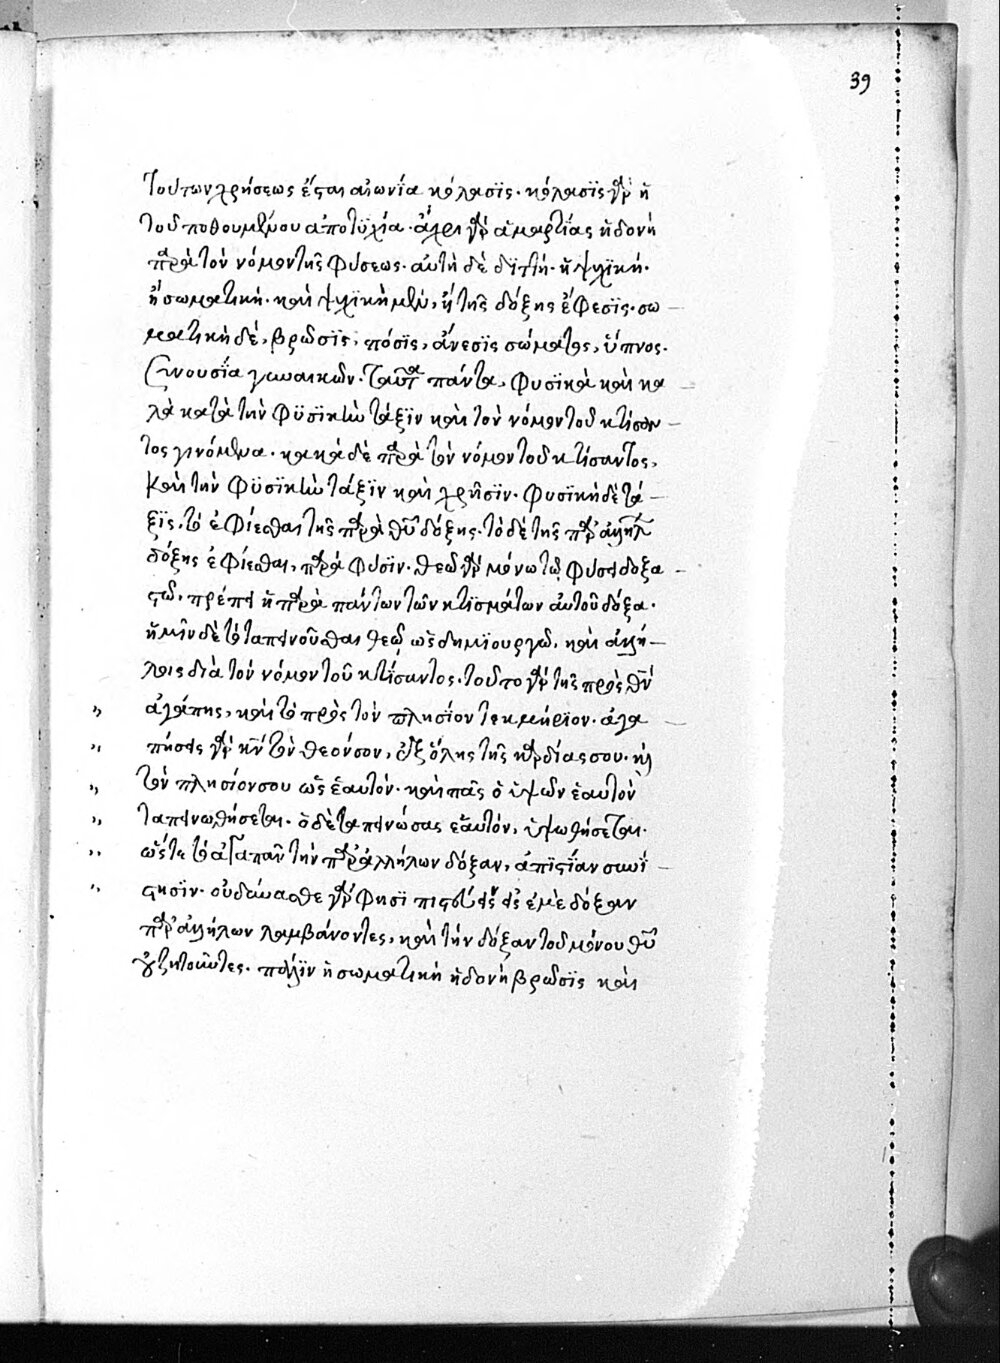 39
τούτων χρήσεως ἔσται αἰωνία κόλασϊς· κόλασϊς γὰρ ἡ
τοῦ ποθουμένου ἀποτϋχία· ἄχρι γὰρ ἁμαρτίας ἡδονὴ
παρὰ τὸν νόμον τῆς φύσεως· αὐτὴ δὲ διττή· ἢ ψχϊκή·
ἢ σωματική· καὶ ψχϊκὴ μὲν, ἡ τῆς δόξης ἔφεσϊς· σω
ματικὴ δὲ, βρῶσϊς, πόσϊς, ἄνεσϊς σώματος, ὕπνος·
συνουσία γυναικῶν· ταῦτα πάντα, φυσϊκὰ καὶ κα
λὰ κατὰ τὴν φϋσϊκὴν τάξϊν καὶ τὸν νόμον τοῦ κτίσαν
τος γινόμενα· κακὰ δὲ παρὰ τὸν νόμον τοῦ κτίσαντος,
καὶ τὴν φϋσϊκὴν τάξϊν καὶ χρῆσϊν· φυσϊκὴ δὲ τά
ξϊς, τὸ ἐφίεσθαι τῆς παρὰ θῦ δόξης· τὸ δὲ τῆς παρ' ἀλλήλων
δόξης ἐφίεσθαι, παρὰ φύσϊν· θεῷ γὰρ μόνω τῷ φύσει δοξα
στῷ, πρέπει ἡ παρὰ πάντων τῶν κτϊσμάτων αὐτοῦ δόξα·
ἡμῖν δὲ τὸ ταπεινοῦσθαι θεῷ ὡς δημϊουργῷ, καὶ ἀλλή
λοις διὰ τὸν νόμον τοῦ κτίσαντος· τοῦτο γὰρ τῆς πρὸς θν
ἀγάπης, καὶ τὸ πρὸς τὸν πλησίον τεκμήριον· ἀγα
πήσεις γὰρ κν τὸν θεόν σου, ἐξ ὅλης τῆς καρδίας σου· καὶ
τὸν πλησίον σου ὡς ἑαυτόν· καὶ πᾶς ὁ ὑψῶν ἑαυτὸν
ταπεινωθήσεται· ὁ δὲ ταπεινώσας ἑαυτόν, ὑψωθήσεται·
ὥστε τὸ ἀγαπᾶν τὴν παρ' ἀλλήλων δόξαν, ἀπϊστίαν συνί
στησϊν· οὐ δύνασθε γὰρ φησϊ πιστεύειν εἰς ἐμὲ δόξαν
παρ' ἀλλήλων λαμβάνοντες, καὶ τὴν δόξαν τοῦ μόνου θῦ
οὐ ζητοῦντες· πάλϊν ἡ σωματικὴ ἡδονὴ βρῶσϊς καὶ